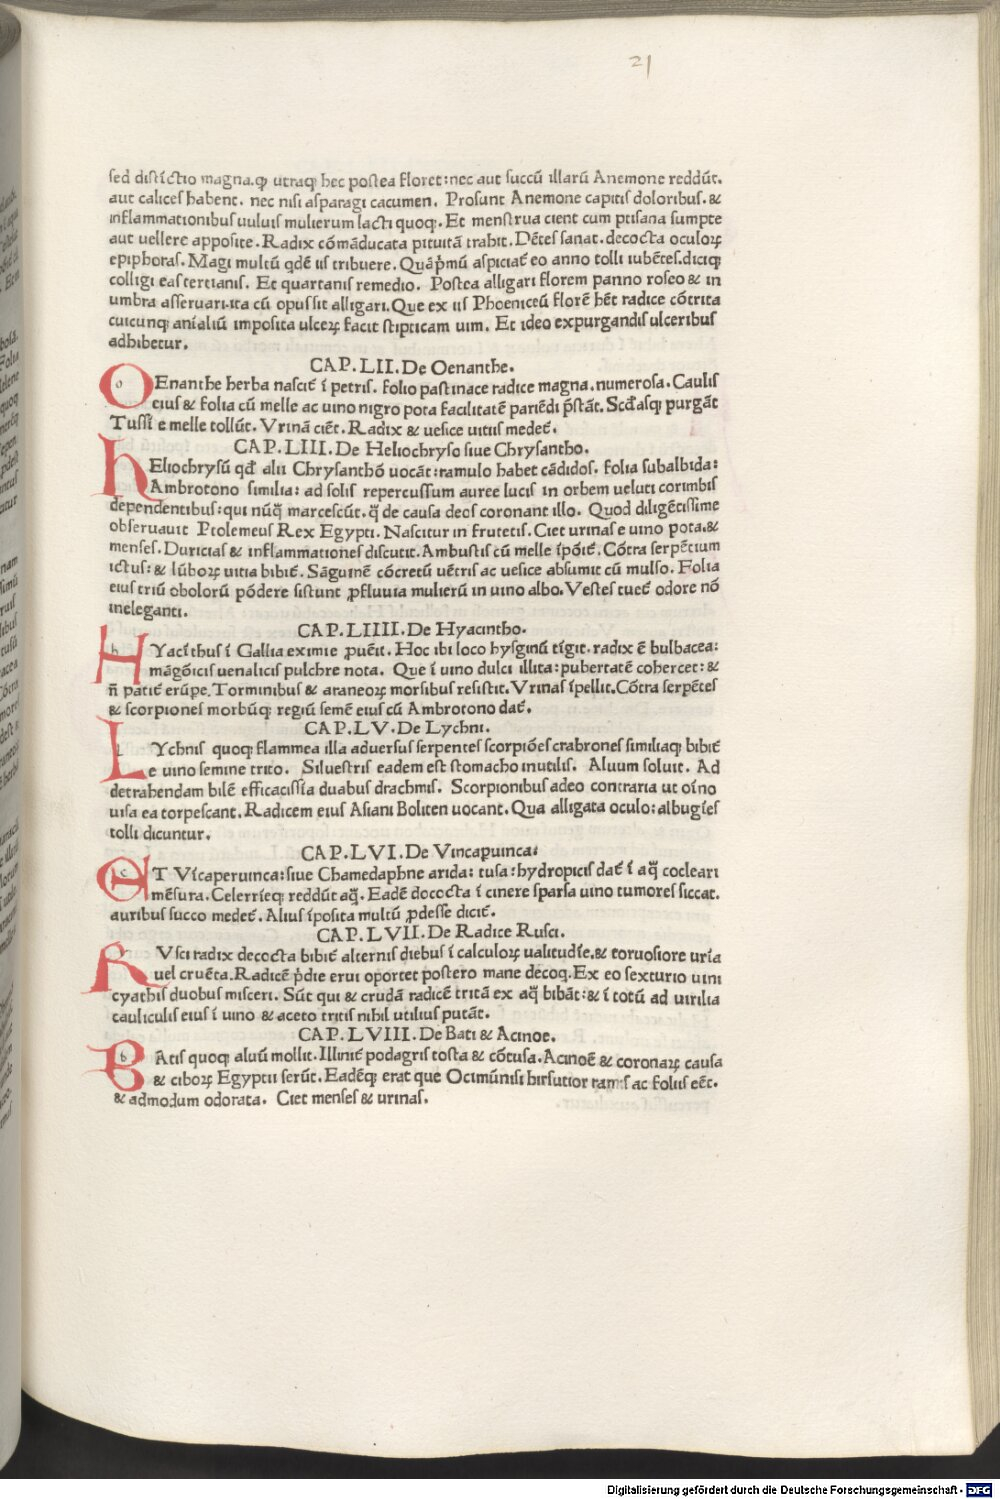 21
sed distĩctio magna. ꝙ utraqꝫ hec postea floret: nec aut succũ illarũ Anemone reddũt.
aut calices habent. nec nisi asparagi cacumen. Prosunt Anemone capitis doloribus. &
inflammationibus uuluis mulierum lacti quoqꝫ. Et menstrua cient cum ptisana sumpte
aut uellere apposite. Radix cõmãducata pituitã trahit. Dẽtes sanat. decocta oculoꝝ
epiphoras. Magi multũ qdẽ iis tribuere. Quãp̃mũ aspiciat̃ eo anno tolli iubẽtes. diciqꝫ
colligi eas tertianis. Et quartanis remedio. Postea alligari florem panno roseo & in
umbra asseruari. ita cũ opus sit alligari. Que ex iis Phoeniceũ florẽ hẽt radice cõtrita
cuicunqꝫ anĩaliũ imposita ulceꝝ facit stipticam uim. Et ideo expurgandis ulceribus
adhibetur.
CAP. LII. De Oenanthe.
OEnanthe herba nascit̃ ĩ petris. folio pastinace radice magna. numerosa. Caulis
eius & folia cũ melle ac uino nigro pota facilitatẽ pariẽdi p̃stãt. Scd̃asqꝫ purgãt
Tussĩ e melle tollũt. Vrinã ciẽt. Radix & uesice uitiis medet̃.
CAP. LIII. De Heliochryso siue Chrysantho.
hEliochrysũ qd̃ alii Chrysanthõ uocãt: ramulo habet cãdidos. folia subalbida:
Ambrotono similia: ad solis repercussum auree lucis in orbem ueluti corimbis
dependentibus: qui nũq̃ marcescũt. q̃ de causa deos coronant illo. Quod diligẽtissime
obseruauit Ptolemeus Rex Egypti. Nascitur in frutetis. Ciet urinas e uino pota. &
menses. Duricias & inflammationes discutit. Ambustis cũ melle ĩpõit̃. Cõtra serpẽtium
ictus: & lũboꝝ uitia bibit̃. Sãguinẽ cõcretũ uẽtris ac uesice absumit cũ mulso. Folia
eius triũ obolorũ põdere sistunt ꝓfluuia mulierũ in uino albo. Vestes tuet̃ odore nõ
ineleganti.
CAP. LIIII. De Hyacintho.
HYacĩthus ĩ Gallia eximie ꝓuẽit. Hoc ibi loco hysginũ tĩgit. radix ẽ bulbacea:
mãgõicis uenalicis pulchre nota. Que ĩ uino dulci illita: pubertatẽ cohercet: &
ñ patit̃ erũpe. Torminibus & araneoꝝ morsibus resistit. Vrinas ĩpellit. Cõtra serpẽtes
& scorpiones morbũqꝫ regiũ semẽ eius cũ Ambrotono dat̃.
CAP. LV. De Lychni.
LYchnis quoqꝫ flammea illa aduersus serpentes scorpiões crabrones similiaqꝫ bibit̃
e uino semine trito. Siluestris eadem est stomacho inutilis. Aluum soluit. Ad
detrahendam bilẽ efficacissĩa duabus drachmis. Scorpionibus adeo contraria ut oĩno
uisa ea torpescant. Radicem eius Asiani Boliten uocant. Qua alligata oculo: albugĩes
tolli dicuntur.
CAP. LVI. De Vincapuinca:
ET Vĩcaperuinca: siue Chamedaphne arida: tusa: hydropicis dat̃ ĩ aq̃ cocleari
mẽsura. Celerrieqꝫ reddũt aq̃. Eadẽ dococta ĩ cinere sparsa uino tumores siccat.
auribus succo medet̃. Alius ĩposita multũ ꝓdesse dicit̃.
CAP. LVII. De Radice Rusci.
RVsci radix decocta bibit̃ alternis diebus ĩ calculoꝝ ualitudĩe. & toruosiore urĩa
uel cruẽta. Radicẽ p̃die erui oportet postero mane decoqꝫ. Ex eo sexturio uini
cyathis duobus misceri. Sũt qui & crudã radicẽ tritã ex aq̃ bibãt: & ĩ totũ ad uirilia
cauliculis eius ĩ uino & aceto tritis nihil utilius putãt.
CAP. LVIII. De Bati & Acinoe.
BAtis quoqꝫ aluũ mollit. Illinit̃ podagris tosta & cõtusa. Acinoẽ & coronaꝝ causa
& ciboꝝ Egyptii serũt. Eadẽqꝫ erat que Ocimũ nisi hirsutior ramis ac foliis eẽt.
& admodum odorata. Ciet menses & urinas.
Digitalisierung gefördert durch die Deutsche Forschungsgemeinschaft - DFG